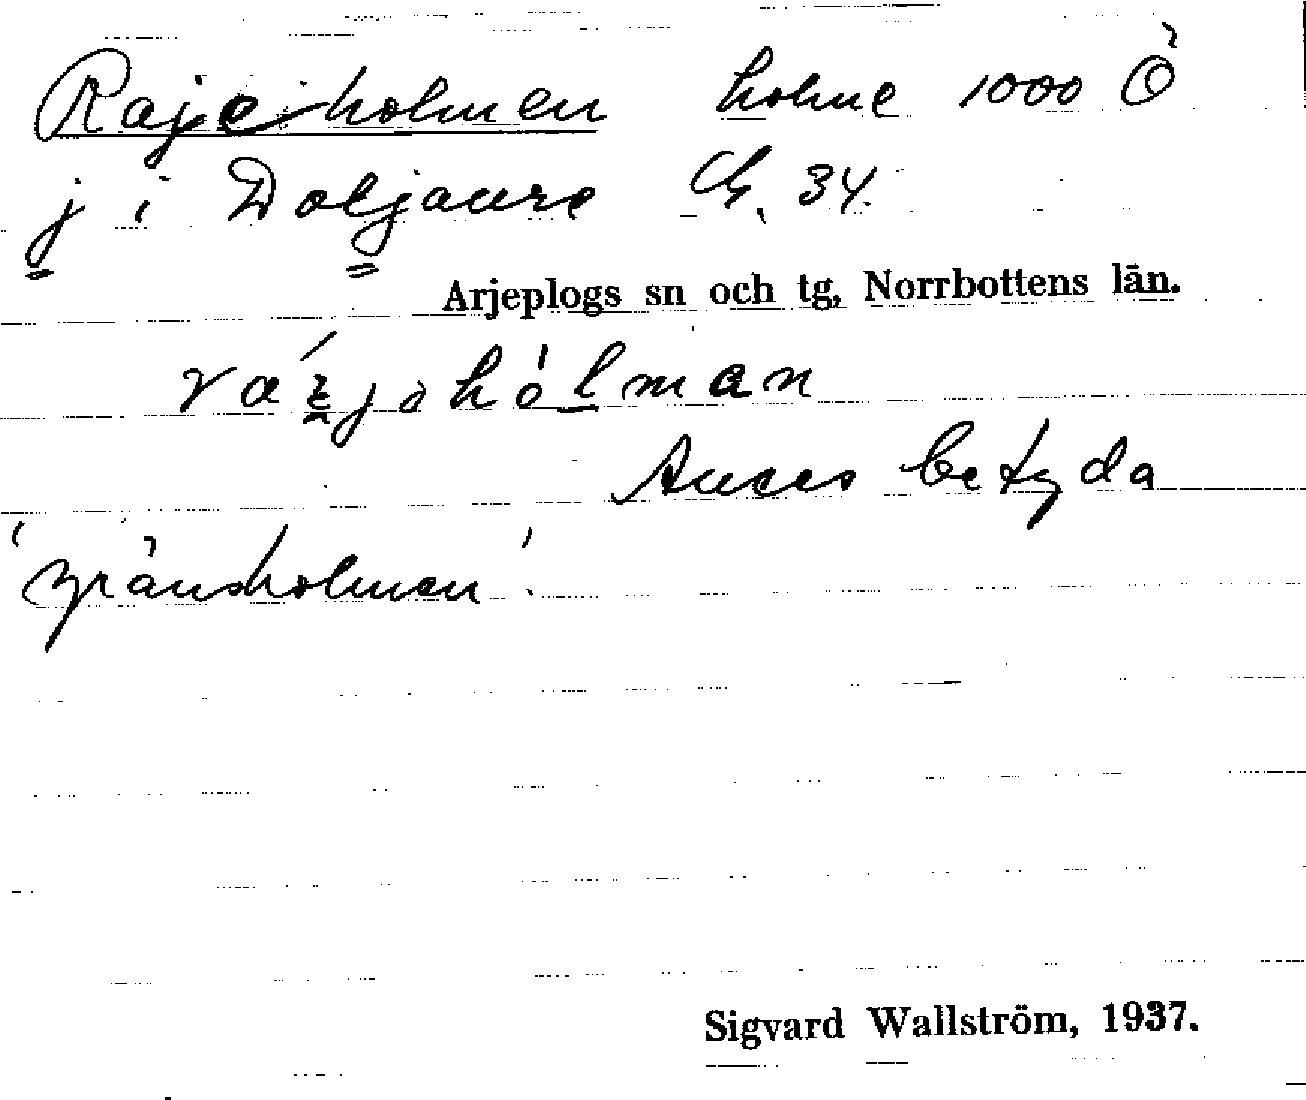 Rajeholmen holme 1000 Ö
j i Doljaure G. 34.
Arjeplogs sn och tg, Norrbottens län.
Anses betyda
'gränsholmen'.
Sigvard Wallström, 1937.